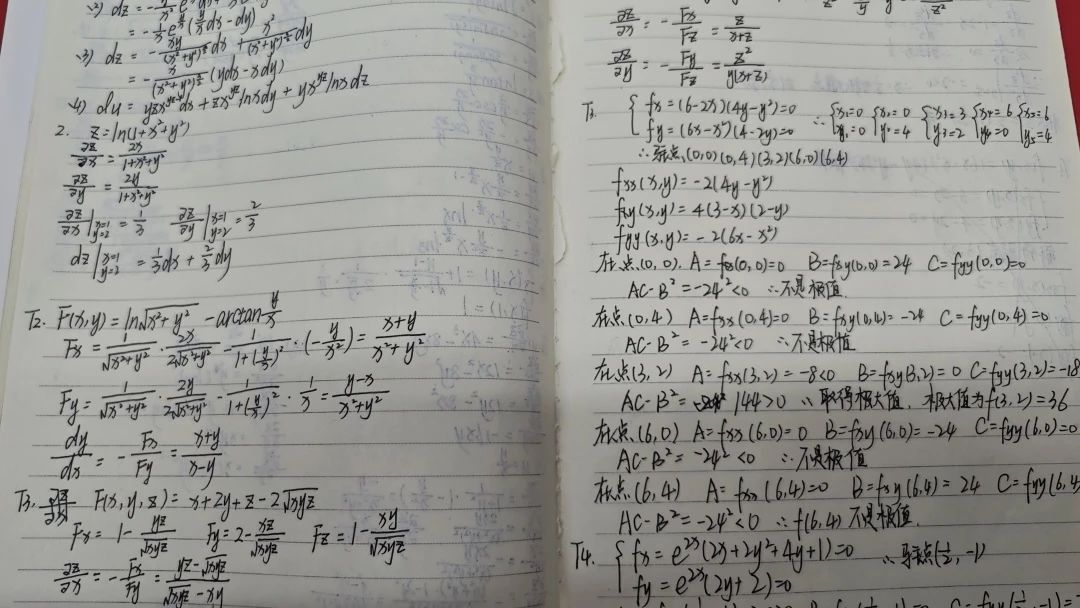 (2) dz = -
= -1/x e^(y/x) (y/x dx - dy)
(3) dz = - xy/(x²+y²)^(3/2) dx + x²/(x²+y²)^(3/2) dy
= - x/(x²+y²)^(3/2) (ydx - xdy)
(4) du = yzx^(yz-1) dx + zx^(yz) lnx dy + yx^(yz) lnx dz
2. z = ln(1+x²+y²)
∂z/∂x = 2x/(1+x²+y²)
∂z/∂y = 2y/(1+x²+y²)
∂z/∂x | x=1 y=2 = 1/3 ∂z/∂y | x=1 y=2 = 2/3
dz | x=1 y=2 = 1/3 dx + 2/3 dy
T2. F(x,y) = ln√(x²+y²) - arctan y/x
Fx = 1/√(x²+y²) · 2x/(2√(x²+y²)) - 1/(1+(y/x)²) · (-y/x²) = (x+y)/(x²+y²)
Fy = 1/√(x²+y²) · 2y/(2√(x²+y²)) - 1/(1+(y/x)²) · 1/x = (y-x)/(x²+y²)
dy/dx = - Fx/Fy = (x+y)/(x-y)
T3. ∂z/∂x F(x,y,z) = x+2y+z-2√(xyz)
Fx = 1 - yz/√(xyz) Fy = 2 - xz/√(xyz) Fz = 1 - xy/√(xyz)
∂z/∂x = - Fx/Fy = (yz-√(xyz))/(√(xyz)-xy)
∂z/∂x = - Fx/Fz = z/(x+z)
∂z/∂y = - Fy/Fz = z²/(y(x+z))
{ fx = (6-2x)(4y-y²)=0
fy = (6x-x²)(4-2y)=0 ∴ {x1=0 y1=0 {x2=0 y2=4 {x3=3 y3=2 {x4=6 y4=0 {x5=6 y5=4
∴ 驻点(0,0)(0,4)(3,2)(6,0)(6,4)
fxx(x,y) = -2(4y-y²)
fxy(x,y) = 4(3-x)(2-y)
fyy(x,y) = -2(6x-x²)
在点(0,0). A=fxx(0,0)=0 B=fxy(0,0)=24 C=fyy(0,0)=0
AC-B² = -24² <0 ∴不是极值.
在点(0,4) A=fxx(0,4)=0 B=fxy(0,4)=-24 C=fyy(0,4)=0
AC-B² = -24² <0 ∴不是极值
在点(3,2) A=fxx(3,2)=-8<0 B=fxy(3,2)=0 C=fyy(3,2)=-18
AC-B² = 144>0 ∴取得极大值, 极大值为f(3,2)=36
在点(6,0) A=fxx(6,0)=0 B=fxy(6,0)=-24 C=fyy(6,0)=0
AC-B² = -24² <0 ∴不是极值
在点(6,4) A=fxx(6,4)=0 B=fxy(6,4)=24 C=fyy(6,4
AC-B² = -24² <0 ∴f(6,4)不是极值.
T4. { fx = e^(2x)(2x+2y²+4y+1)=0 ∴驻点(1/2,-1)
fy = e^(2x)(2y+2)=0